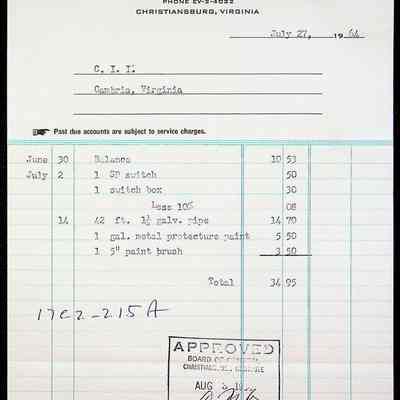 PHONE EV-2-4022
CHRISTIANSBURG, VIRGINIA
July 27, 1964
C. I. I.
Cambria, Virginia
Past due accounts are subject to service charges.
June 30 Balance 10 53
July 2 1 SP switch 50
1 switch box 30
Less 10% 08
14 42 ft. 1¼ galv. pipe 14 70
1 gal. metal protecture paint 5 50
1 5" paint brush 3 50
Total 34 95
17C2-215A
APPROVED
BOARD OF
CHRISTIANSBURG
AUG 3